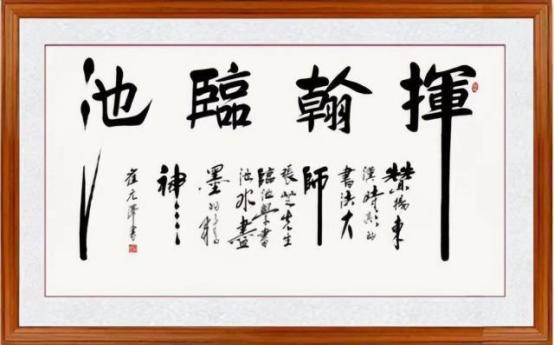 揮翰臨池
贊揚東
漢時期的
書法大
師
張芝先生
臨池學書
池水盡
墨的精
神
崔元書